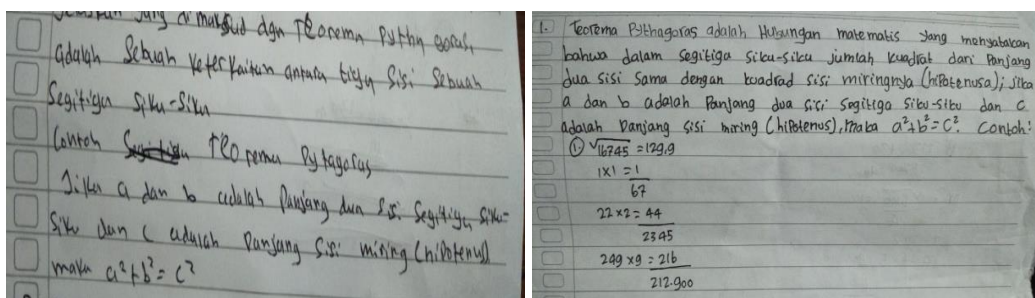 yang di maksud dgn Teorema Pythagoras,
adalah Sebuah keterkaitan antara tiga Sisi Sebuah
Segitiga Siku-Siku
Contoh Teorema Pytagoras
Jika a dan b adalah Panjang dua Sisi Segitiga Siku-
Siku dan c adalah Panjang Sisi miring (hipotenus)
maka a²+b²=c²
1. Teorema Pythagoras adalah Hubungan matematis yang menyatakan
bahwa dalam Segitiga Siku-siku jumlah kuadrat dari Panjang
dua sisi Sama dengan kuadrad sisi miringnya (hipotenusa); Jika
a dan b adalah Panjang dua sisi segitiga siku-siku dan c
adalah Panjang sisi miring (hipotenus), maka a²+b²=c². Contoh:
① √16745 = 129,9
1x1 = 1
67
22 x 2 = 44
2345
249 x 9 = 216
212.900